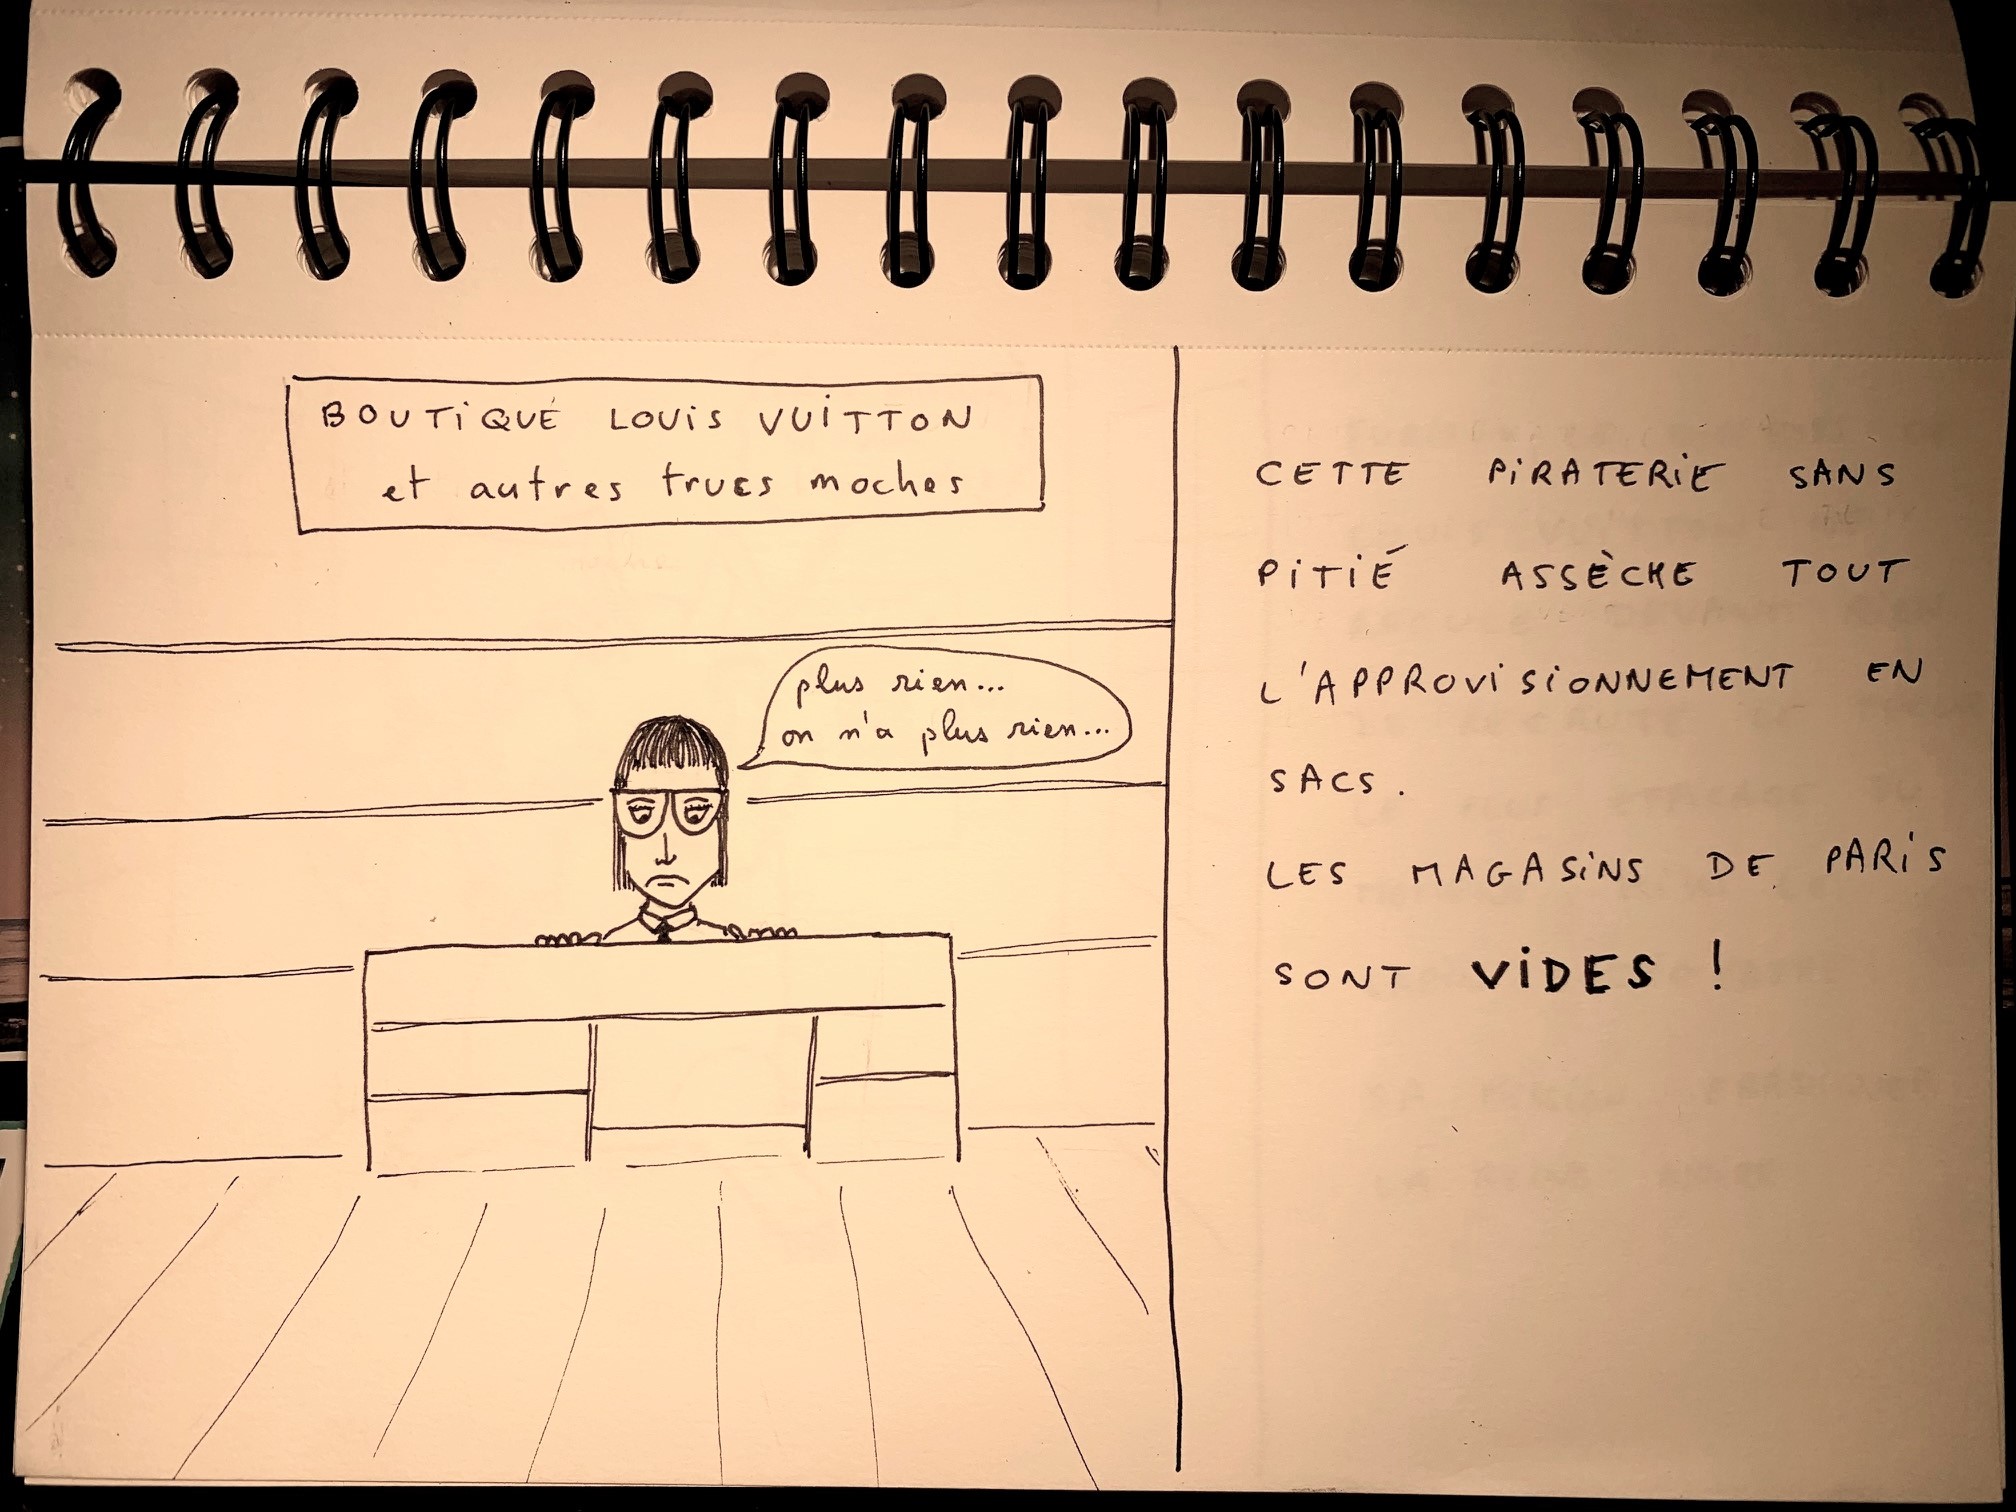 BOUTIQUE LOUIS VUITTON
et autres trucs moches
plus rien...
on n'a plus rien...
CETTE PIRATERIE SANS
PITIÉ ASSÈCHE TOUT
L'APPROVISIONNEMENT EN
SACS.
LES MAGASINS DE PARIS
SONT VIDES !